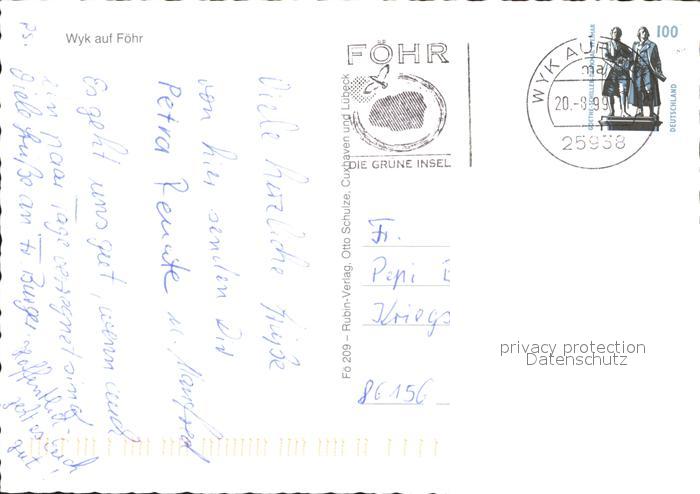 Wyk auf Föhr
Viele herzliche Grüße
von hier senden Dir
Petra Renate u. Manfred
Es geht uns gut, wenn auch
ein paar Tage verregnet sind
Ps.
Viele Grüße an Fr Burger hoffentlich
geht es euch
gut!
Fö 209 – Rubin-Verlag, Otto Schulze, Cuxhaven und Lübeck
FÖHR
DIE GRÜNE INSEL
WYK AUF
20.-8.99
25938
100
DEUTSCHLAND
Fr.
Pepi
Kriegs
86156
privacy protection
Datenschutz